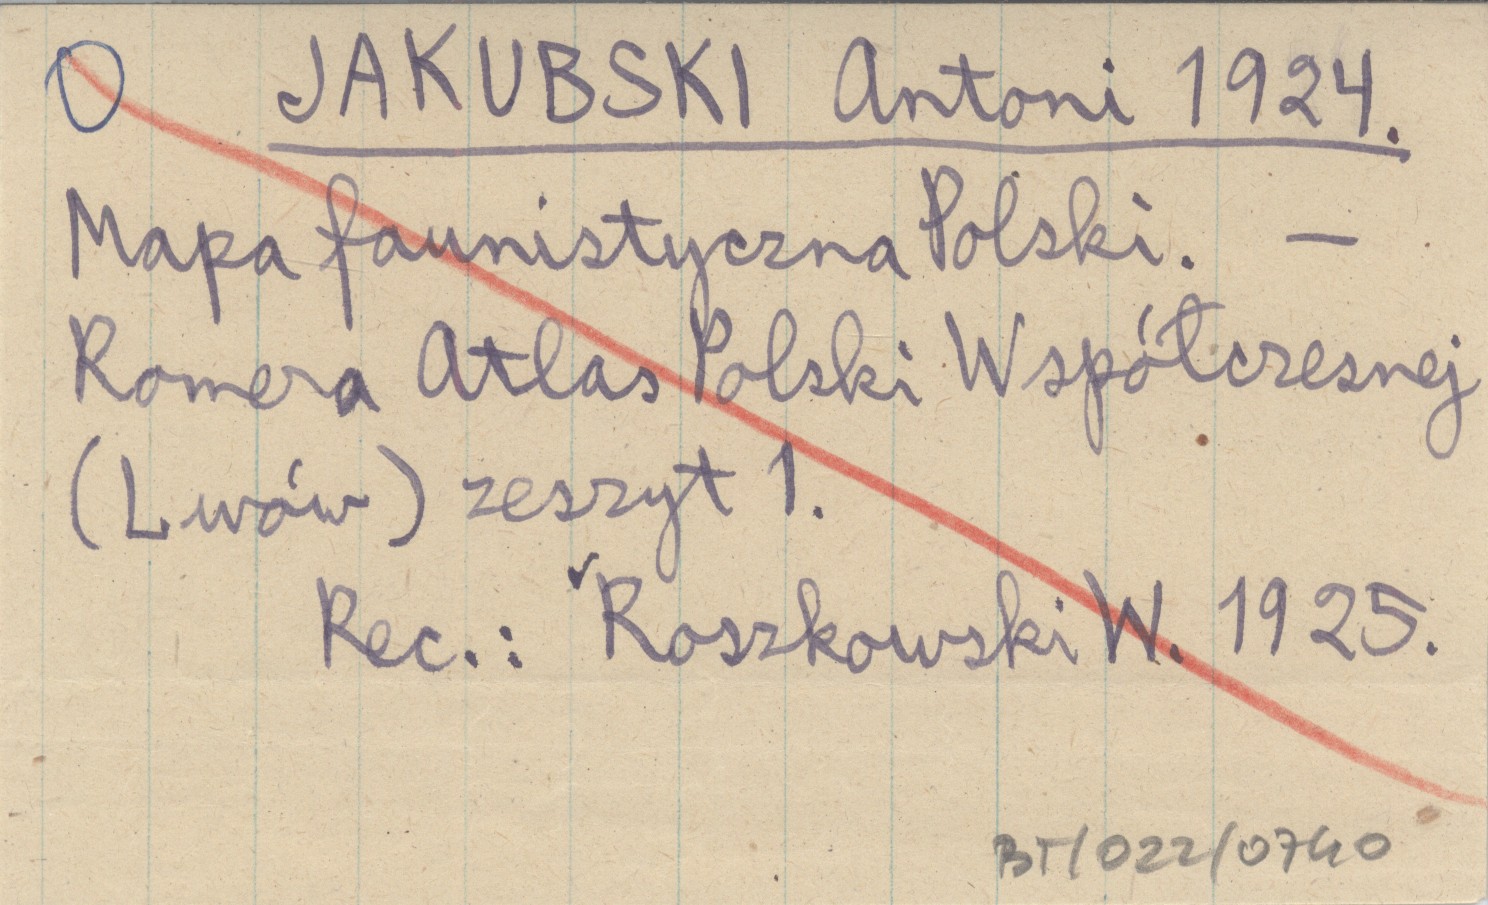 O JAKUBSKI Antoni 1924.
Mapa faunistyczna Polski. —
Romera Atlas Polski Współczesnej
(Lwów) zeszyt 1.
Rec.: ✓Roszkowski W. 1925.
BT/022/0740